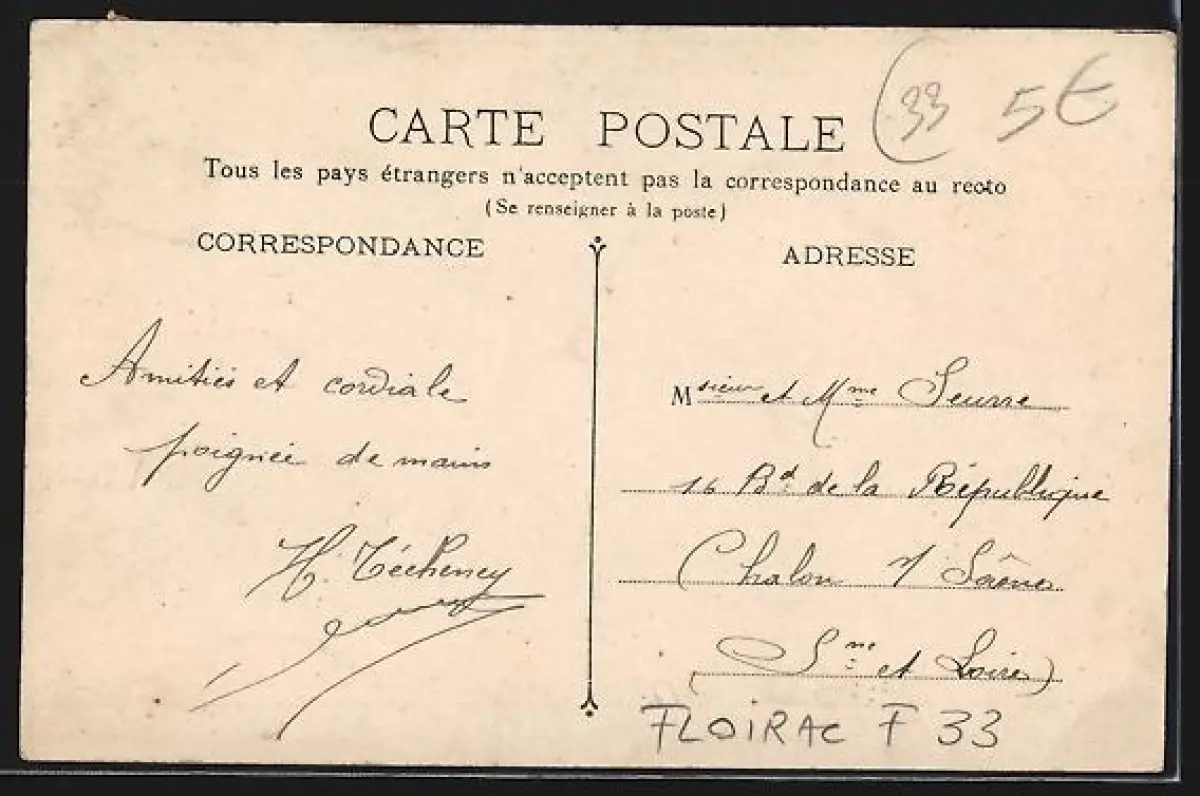 33 5€
CARTE POSTALE
Tous les pays étrangers n'acceptent pas la correspondance au recto
(Se renseigner à la poste)
CORRESPONDANCE
Amitiés et cordiale
poignée de mains
H. Técheney
ADRESSE
Msieur et Mme Seurre
16 Bd de la République
Chalon s/ Saône
Sne et Loire)
FLOIRAC F 33